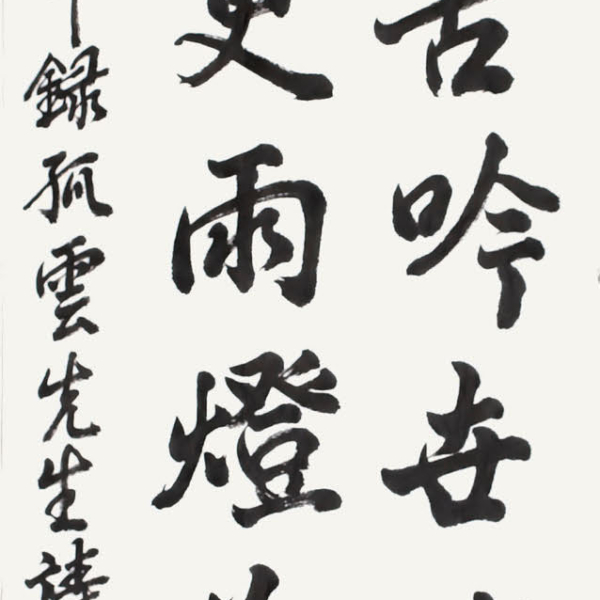 苦吟世
更雨燈
錄孤雲先生詩